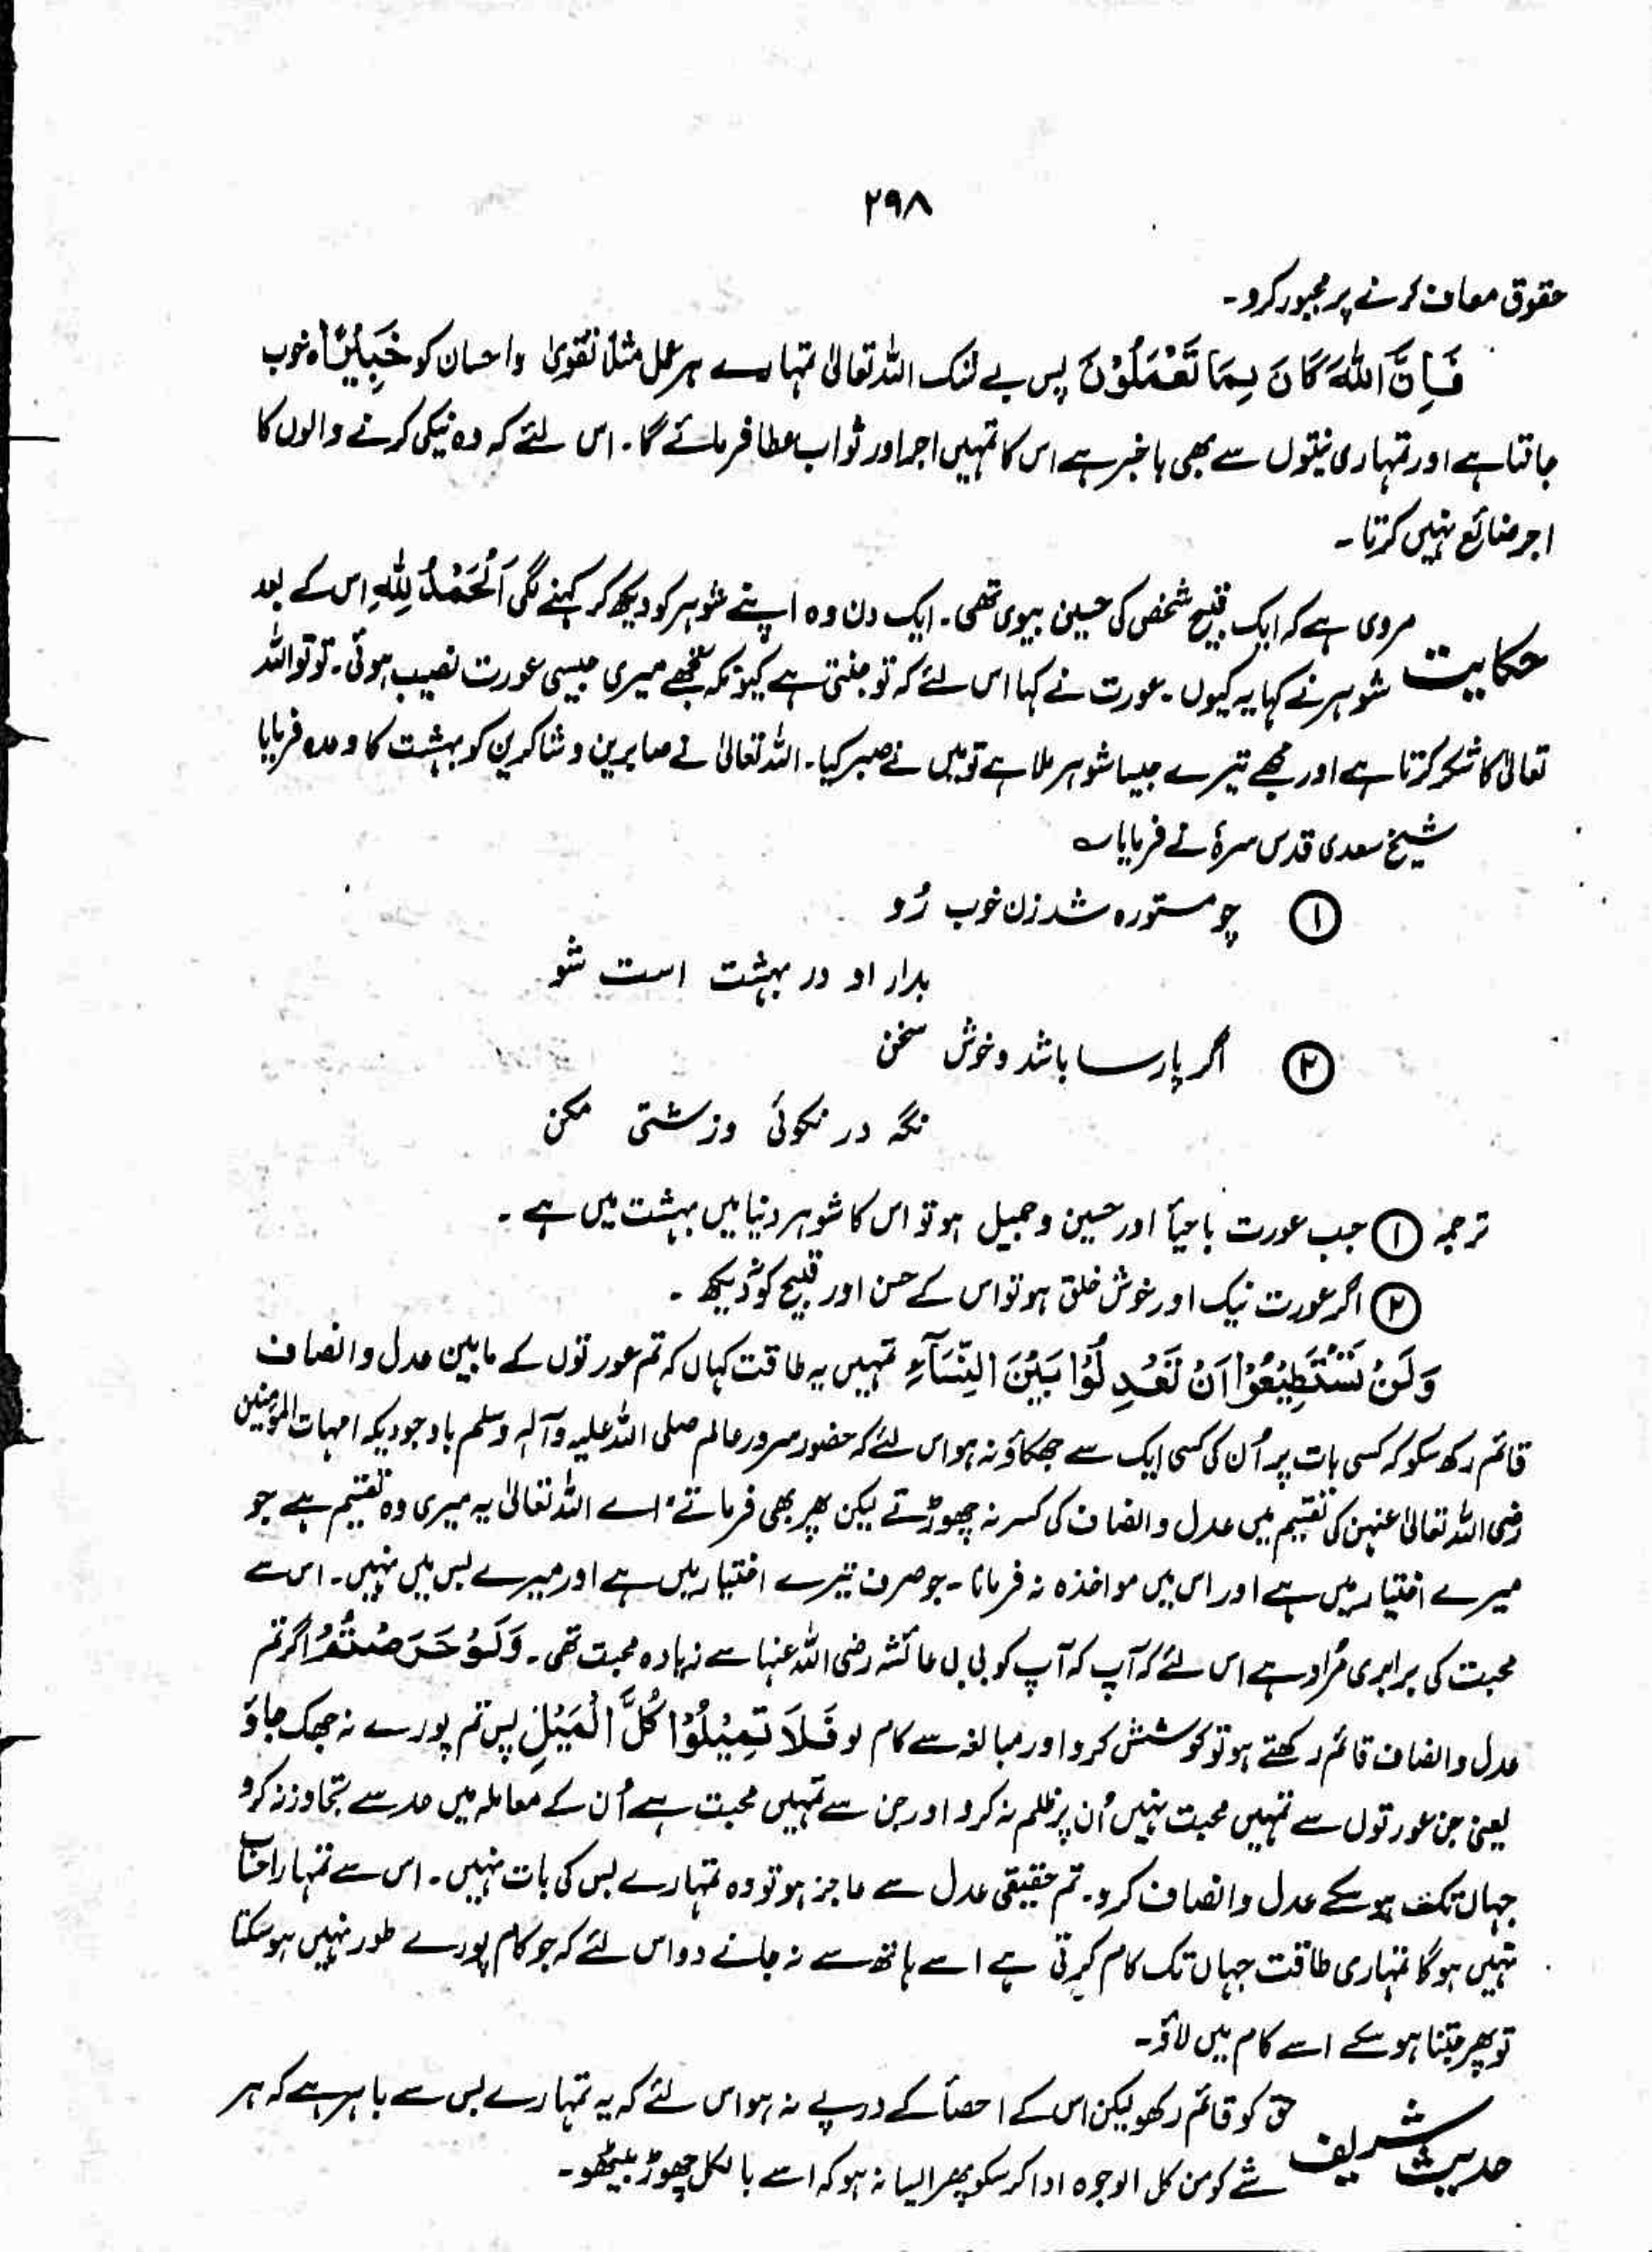 ۲۹۸
حقوق معاف کرنے پر مجبور کرو۔
فَاِنَّ اللّٰہَ کَانَ بِمَا تَعْمَلُوْنَ پس بے شک اللہ تعالیٰ تمہارے ہر عمل مثلاً تقویٰ واحسان کو خَبِیْرًا ہ خوب
جانتا ہے اور تمہاری نیتوں سے بھی باخبر ہے اس کا تمہیں اجر اور ثواب عطا فرمائے گا۔ اس لئے کہ وہ نیکی کرنے والوں کا
اجر ضائع نہیں کرتا۔
مروی ہے کہ ایک قبیح شخص کی حسین بیوی تھی۔ ایک دن وہ اپنے شوہر کو دیکھ کر کہنے لگی اَلْحَمْدُ لِلّٰہِ اس کے بعد
حکایت شوہر نے کہا یہ کیوں۔ عورت نے کہا اس لئے کہ تو جنتی ہے کیونکہ تجھے میری جیسی عورت نصیب ہوئی۔ تو تو اللہ
تعالیٰ کا شکر کرتا ہے اور مجھے تیرے جیسا شوہر ملا ہے تو میں نے صبر کیا۔ اللہ تعالیٰ نے صابرین و شاکرین کو بہشت کا وعدہ فرمایا
شیخ سعدی قدس سرہٗ نے فرمایا ؎
① چو مستورہ شد زن خوب رُو
بدار او در بہشت است شو
② اگر پارسا باشد و خوش سخن
نگہ در نکوئی وزشتی مکن
ترجمہ ① جب عورت باحیأ اور حسین و جمیل ہو تو اس کا شوہر دنیا میں بہشت میں ہے۔
② اگر عورت نیک اور خوش خلق ہو تو اس کے حسن اور قبیح کو نہ دیکھ۔
وَلَنْ تَسْتَطِیْعُوْٓا اَنْ تَعْدِلُوْا بَیْنَ النِّسَآءِ تمہیں یہ طاقت کہاں کہ تم عورتوں کے مابین عدل و انصاف
قائم رکھ سکو کہ کسی بات پر اُن کی کسی ایک سے جھکاؤ نہ ہو اس لئے کہ حضور سرور عالم صلی اللہ علیہ وآلہٖ وسلم باوجودیکہ امہات المؤمنین
رضی اللہ تعالیٰ عنہن کی تقسیم میں عدل و انصاف کی کسر نہ چھوڑتے لیکن پھر بھی فرماتے "اے اللہ تعالیٰ یہ میری وہ تقسیم ہے جو
میرے اختیار میں ہے اور اس میں مواخذہ نہ فرمانا۔ جو صرف تیرے اختیار میں ہے اور میرے بس میں نہیں۔ اس سے
محبت کی برابری مُراد ہے اس لئے کہ آپ کہ آپ کو بی بی عائشہ رضی اللہ عنہا سے زیادہ محبت تھی۔ وَلَوْ حَرَصْتُمْ اگر تم
عدل و انصاف قائم رکھتے ہو تو کوشش کرو اور مبالغہ سے کام لو فَلَا تَمِیْلُوْا کُلَّ الْمَیْلِ پس تم پورے نہ جھک جاؤ
یعنی جن عورتوں سے تمہیں محبت نہیں اُن پر ظلم نہ کرو اور جن سے تمہیں محبت ہے اُن کے معاملہ میں حد سے تجاوز نہ کرو
جہاں تک ہو سکے عدل و انصاف کرو۔ تم حقیقی عدل سے عاجز ہو تو وہ تمہارے بس کی بات نہیں۔ اس سے تمہارا حساب
نہیں ہوگا تمہاری طاقت جہاں تک کام کرتی ہے اسے ہاتھ سے نہ جانے دو اس لئے کہ جو کام پورے طور نہیں ہو سکتا
تو پھر جتنا ہو سکے اسے کام میں لاؤ۔
حق کو قائم رکھو لیکن اس کے احصأ کے درپے نہ ہو اس لئے کہ یہ تمہارے بس سے باہر ہے کہ ہر
حدیث شریف شے کو من کل الوجوہ ادا کر سکو پھر ایسا نہ ہو کہ اسے بالکل چھوڑ بیٹھو۔